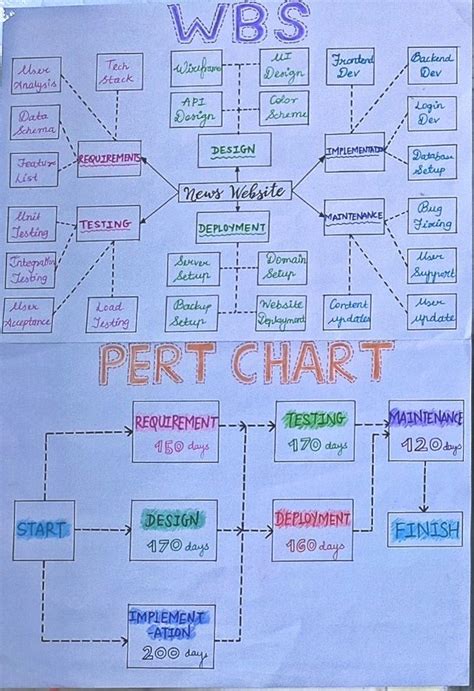 WBS
User
Analysis
Tech
Stack
Wireframe
UI
Design
Frontend
Dev
Backend
Dev
Data
Schema
API
Design
Color
Scheme
Login
Dev
Feature
List
REQUIREMENTS
DESIGN
IMPLEMENTATION
Database
Setup
News Website
Unit
Testing
TESTING
DEPLOYMENT
MAINTENANCE
Bug
Fixing
Integration
Testing
Server
Setup
Domain
Setup
User
Support
User
Acceptance
Load
Testing
Backup
Setup
Website
Deployment
Content
updates
User
update
PERT CHART
REQUIREMENT
150 days
TESTING
170 days
MAINTENANCE
120 days
START
DESIGN
170 days
DEPLOYMENT
160 days
FINISH
IMPLEMENT
-ATION
200 days